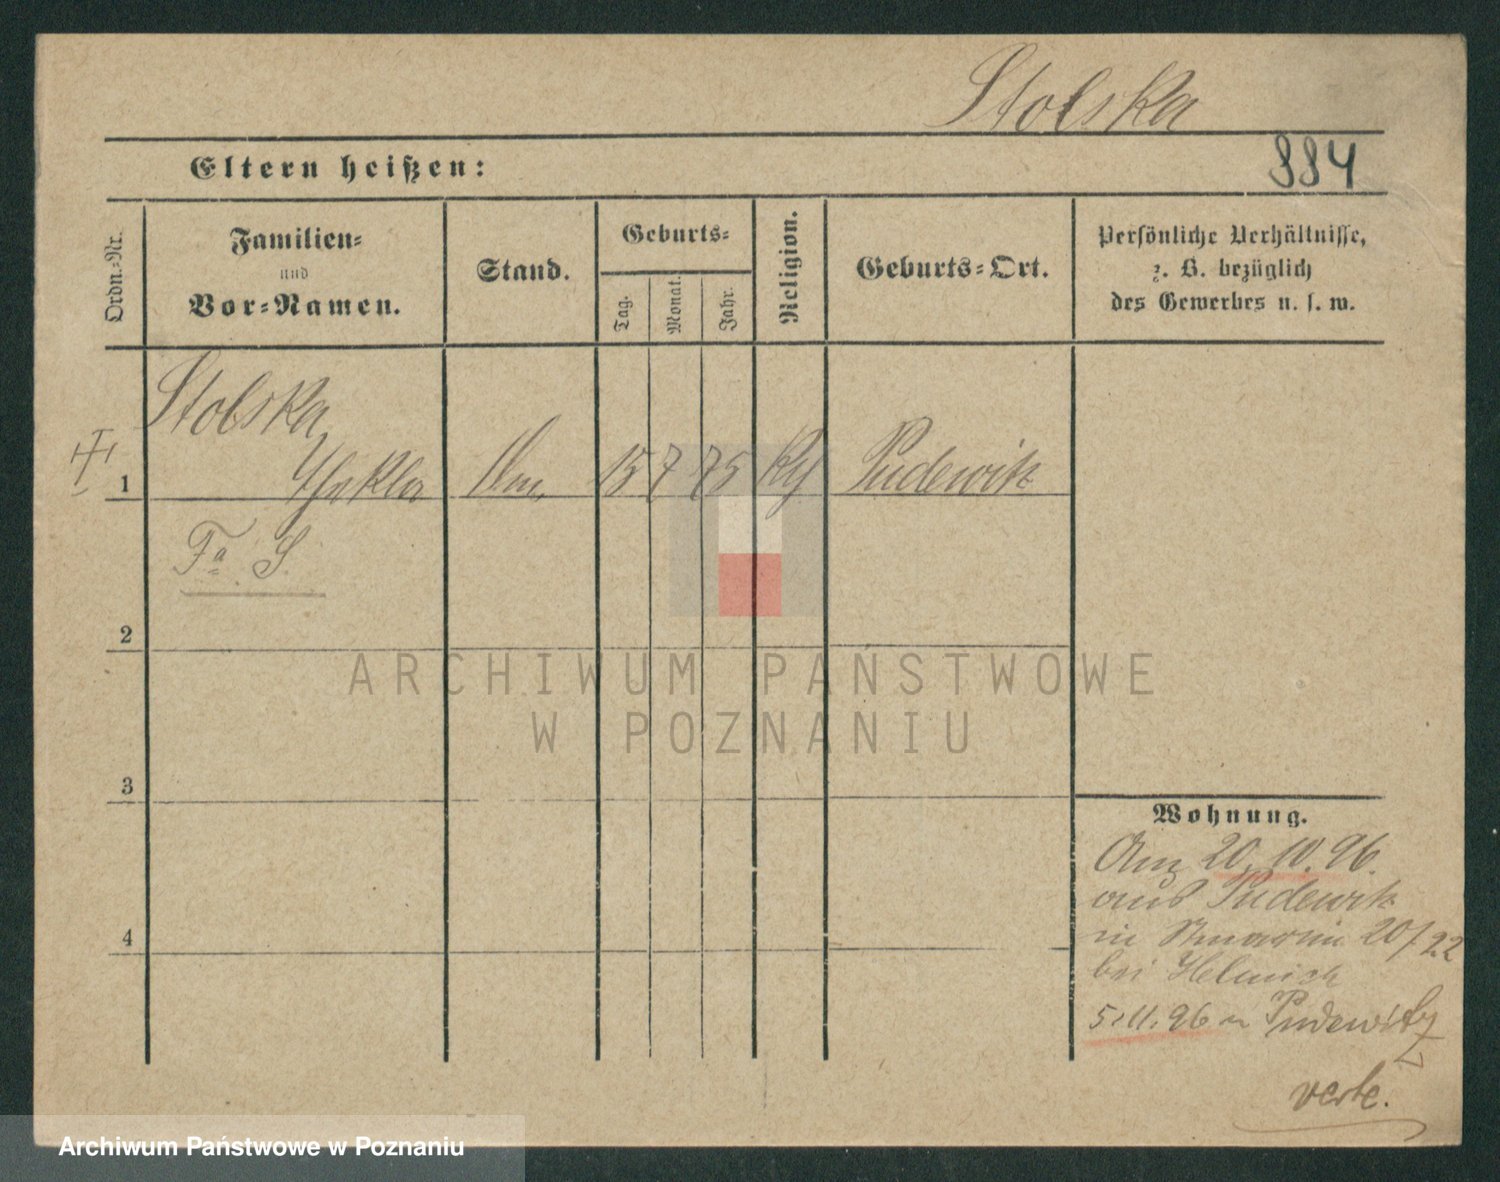 Stolska
884
Eltern heißen:
Ordn.-Nr.
Familien-
und
Vor-Namen.
Stand.
Geburts-
Tag.
Monat.
Jahr.
Religion.
Geburts-Ort.
Persönliche Verhältnisse,
z. B. bezüglich
des Gewerbes u. s. w.
Stolska
1 15 7 75 Pudewitz
Fa S.
2
3
4
ARCHIWUM PAŃSTWOWE
W POZNANIU
Wohnung.
Am 20. 10. 96.
aus Pudewitz
in 20/22
bei Helmich
5.11.96 n Pudewitz
Archiwum Państwowe w Poznaniu